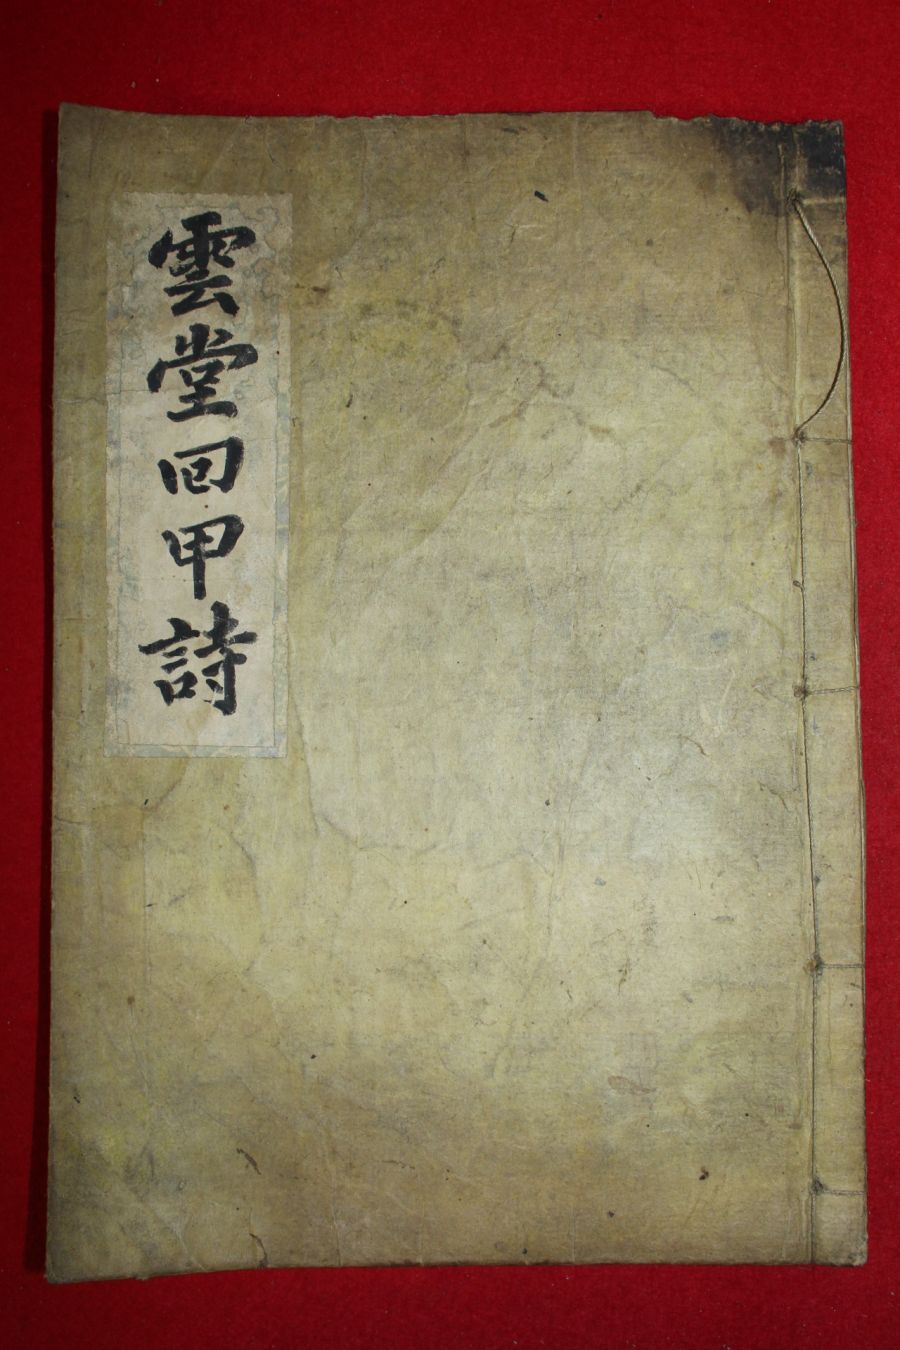 雲堂回甲詩